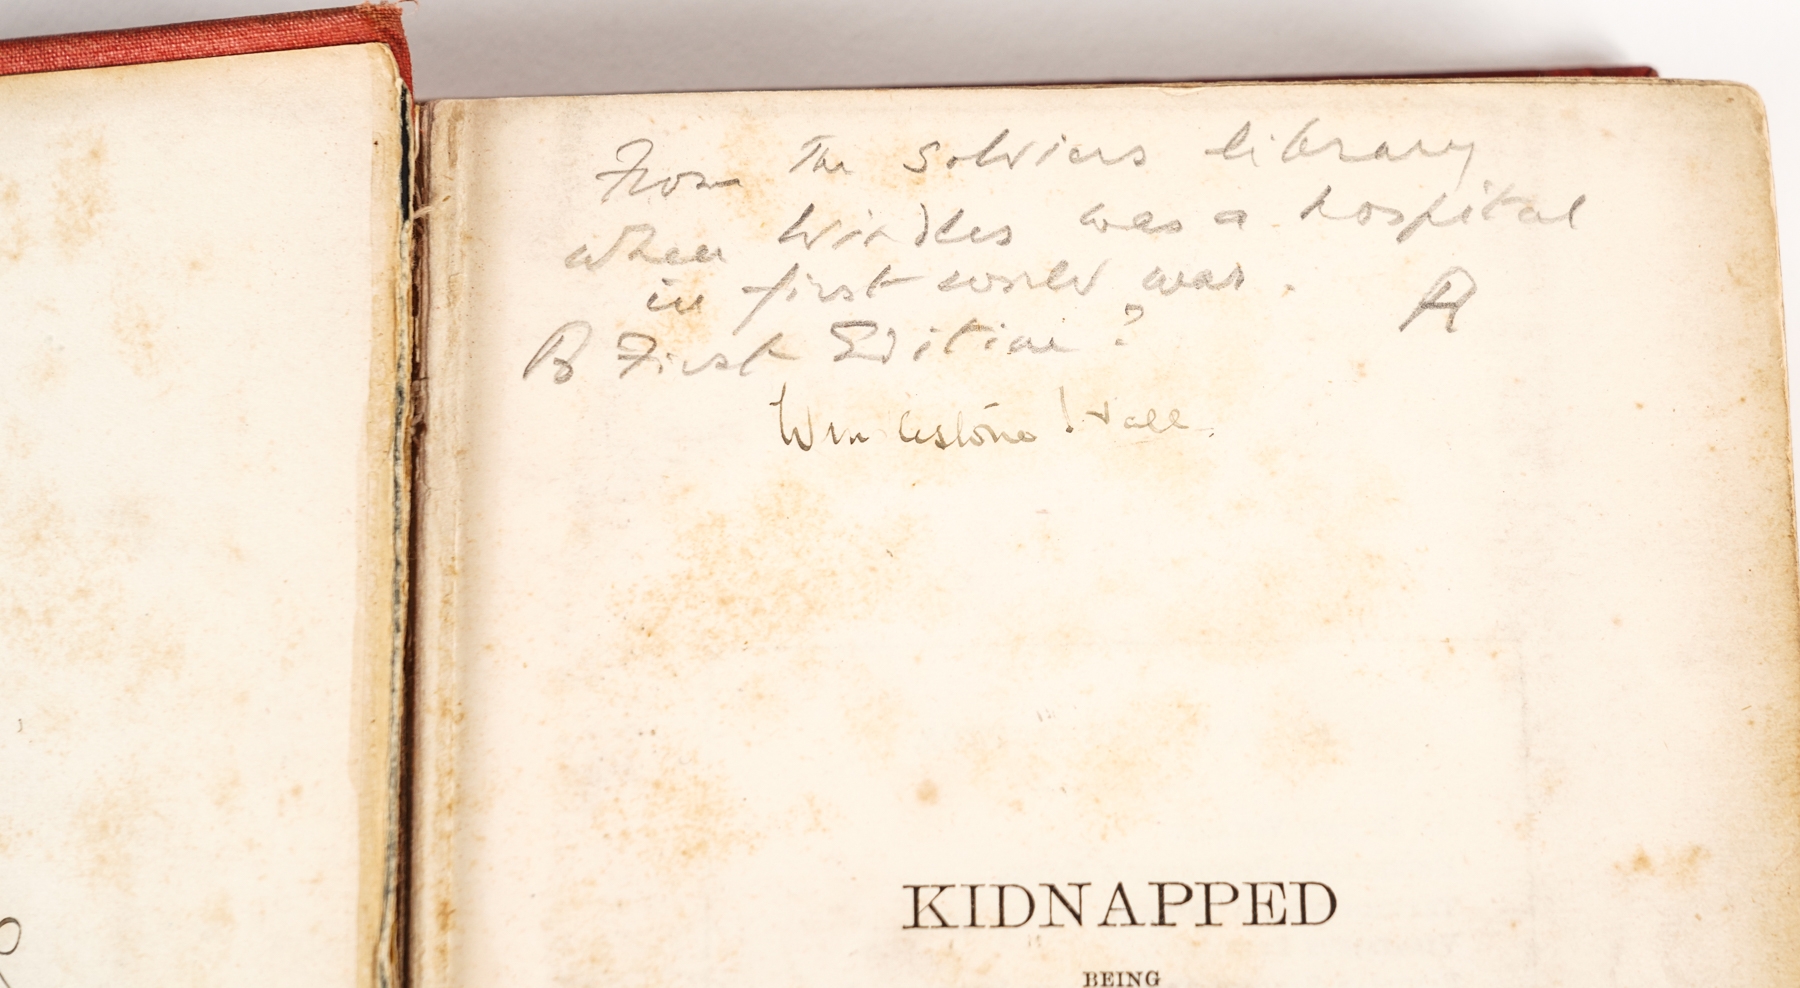 From The Soldiers library
when Windles was a hospital
in first world war.
R
B First Edition?
Hall
KIDNAPPED
BEING